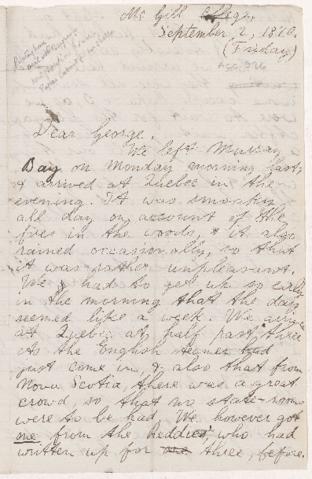 McGill College,
September, 2, 1870.
(Friday)
Acc. 926
Dear George.
We left Murray
Bay on Monday morning last,
& arrived at Quebec in the
evening. It was smoky
all day on account of the
fires in the woods, & it also
rained occasionally, so that
it was rather unpleasant.
We had to get up so early
in the morning that the day
seemed like a week. We arrived
at Quebec at half past three
As the English steamer had
just come in, & also that from
Nova Scotia, there was a great
crowd so that no state-rooms
were to be had. We however got
one from the Reddies, who had
written up for three, before.